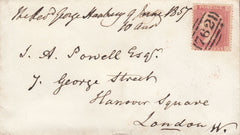 The Revd George Hanbury 9 June 1857
762
S. A. Powell Esqre
7. George Street
Hanover Square
London W.